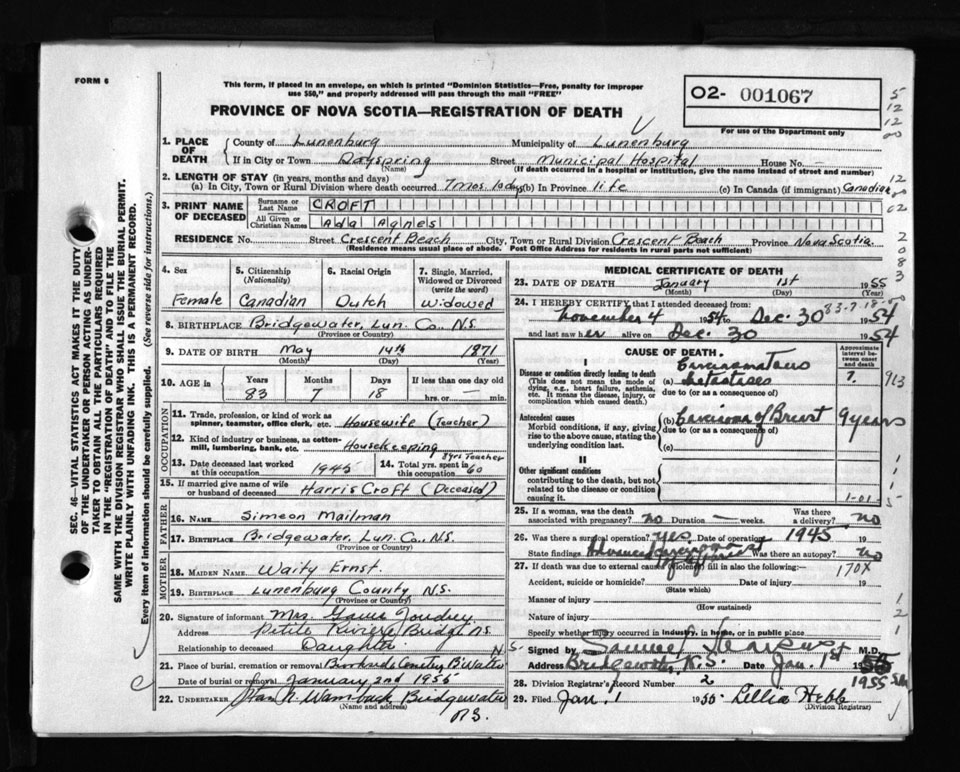 FORM 6
This form, if placed in an envelope, on which is printed "Dominion Statistics—Free, penalty for improper
use $50," and properly addressed will pass through the mail "FREE"
PROVINCE OF NOVA SCOTIA—REGISTRATION OF DEATH
O2- 001067
For use of the Department only
5
12
12
00
1. PLACE OF DEATH
County of Lunenburg Municipality of Lunenburg
If in City or Town Dayspring Street Municipal Hospital House No. —
(Name) (If death occurred in a hospital or institution, give the name instead of street and number)
2. LENGTH OF STAY (in years, months and days)
(a) In City, Town or Rural Division where death occurred 7 mos. 10 dys (b) In Province life (c) In Canada (if immigrant) Canadian
12
02
3. PRINT NAME OF DECEASED
Surname or Last Name CROFT
All Given or Christian Names Ada Agnes
RESIDENCE No. Street Crescent Beach City, Town or Rural Division Crescent Beach Province Nova Scotia.
(Residence means usual place of abode. Post Office Address for residents in rural parts not sufficient)
2
0
8
3
4. Sex
Female
5. Citizenship
(Nationality)
Canadian
6. Racial Origin
Dutch
7. Single, Married, Widowed or Divorced
(write the word)
Widowed
8. BIRTHPLACE Bridgewater, Lun. Co., N.S.
(Province or Country)
9. DATE OF BIRTH May 14th 1871
(Month) (Day) (Year)
10. AGE in Years Months Days If less than one day old
83 7 18 hrs. or — min.
OCCUPATION
11. Trade, profession, or kind of work as
spinner, teamster, office clerk, etc. Housewife (Teacher)
12. Kind of industry or business, as cotton-
mill, lumbering, bank, etc. Housekeeping
13. Date deceased last worked
at this occupation 1945
14. Total yrs. spent in
this occupation 60
8 yrs Teacher
15. If married give name of wife
or husband of deceased Harris Croft (Deceased)
FATHER
16. NAME Simeon Mailman
17. BIRTHPLACE Bridgewater, Lun. Co., N.S.
(Province or Country)
MOTHER
18. MAIDEN NAME Waity Ernst.
19. BIRTHPLACE Lunenburg County N.S.
(Province or Country)
20. Signature of informant Mrs. Joudrey
Address Petite Riviere Bridge N.S.
Relationship to deceased Daughter
21. Place of burial, cremation or removal Cemetery B'Water N.S.
Date of burial or removal January 2nd 1955
22. UNDERTAKER R. Wamback Bridgewater
(Name and address)
N.S.
MEDICAL CERTIFICATE OF DEATH
23. DATE OF DEATH January 1st 1955
(Month) (Day) (Year)
24. I HEREBY CERTIFY that I attended deceased from:
November 4 1954 to Dec. 30 1954
83-7-18
and last saw her alive on Dec. 30 1954
CAUSE OF DEATH.
Approximate interval between onset and death
I
Disease or condition directly leading to death
(This does not mean the mode of dying, e.g., heart failure, asthenia, etc. It means the disease, injury, or complication which caused death.)
(a) Carcinomatous Metastases
due to (or as a consequence of)
?
913
Antecedent causes
Morbid conditions, if any, giving rise to the above cause, stating the underlying condition last.
(b) Carcinoma of Breast 9 years
due to (or as a consequence of)
(c)
II
Other significant conditions
contributing to the death, but not related to the disease or condition causing it.
1-01
1
1
1
5
25. If a woman, was the death
associated with pregnancy? no Duration — weeks. Was there a delivery? no
26. Was there a surgical operation? Yes Date of operation 1945 19
State findings Advanced carcinoma of breast Was there an autopsy? no
27. If death was due to external causes (violence) fill in also the following:—
170X
Accident, suicide or homicide? Date of injury 19
(State which)
Manner of injury
(How sustained)
Nature of injury
Specify whether injury occurred in industry, in home, or in public place
1
2
1
Signed by Samuel M.D.
Address Bridgewater, N.S. Date Jan. 1st 1955
28. Division Registrar's Record Number 2
1955
29. Filed Jan. 1 1955 Lellia Hebb
(Division Registrar)
SEC. 46—VITAL STATISTICS ACT MAKES IT THE DUTY
OF THE UNDERTAKER OR PERSON ACTING AS UNDER-
TAKER TO OBTAIN ALL THE PARTICULARS REQUIRED
IN THE "REGISTRATION OF DEATH" AND TO FILE THE
SAME WITH THE DIVISION REGISTRAR WHO SHALL ISSUE THE BURIAL PERMIT.
WRITE PLAINLY WITH UNFADING INK. THIS IS A PERMANENT RECORD.
Every item of information should be carefully supplied. (See reverse side for instructions.)